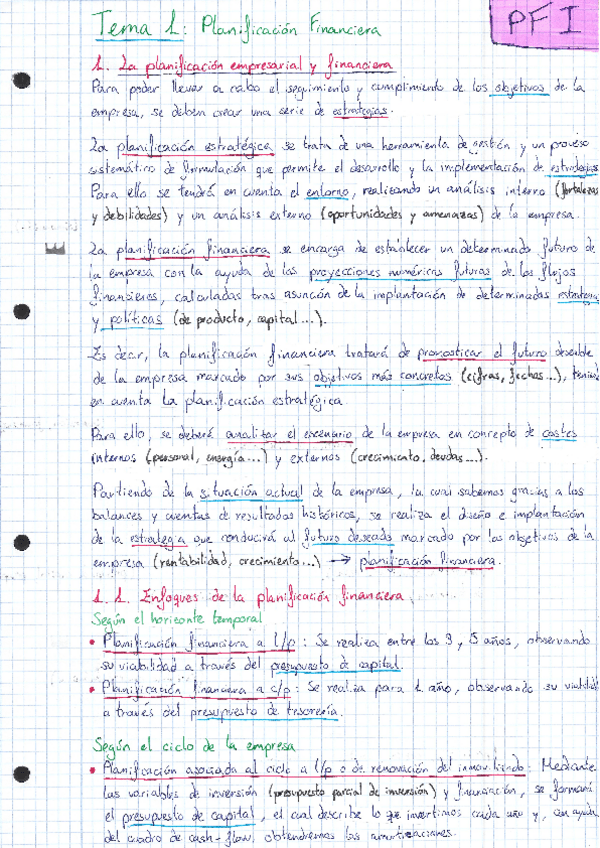 Tema 1: Planificación Financiera
PFI
1. La planificación empresarial y financiera
Para poder llevar a cabo el seguimiento y cumplimiento de los objetivos de la
empresa, se deben crear una serie de estrategias.
La planificación estratégica se trata de una herramienta de gestión y un proceso
sistemático de formulación que permite el desarrollo y la implementación de estrategias
Para ello se tendrá en cuenta el entorno, realizando un análisis interno (fortalezas
y debilidades) y un análisis externo (oportunidades y amenazas) de la empresa.
La planificación financiera se encarga de establecer un determinado futuro de
la empresa con la ayuda de las proyecciones numéricas futuras de los flujos
financieros, calculadas tras asunción de la implantación de determinadas estrateg
y políticas (de producto, capital...).
Es decir, la planificación financiera tratará de pronosticar el futuro deseable
de la empresa marcado por sus objetivos más concretos (cifras, fechas...), tenien
en cuenta la planificación estratégica
Para ello, se deberá analizar el escenario de la empresa en concepto de costes
internos (personal, energía...) y externos (crecimiento, deudas...).
Partiendo de la situación actual de la empresa, la cual sabemos gracias a los
balances y cuentas de resultados históricos, se realiza el diseño e implantación
de la estrategia que conducirá al futuro deseado marcado por los objetivos de la
empresa (rentabilidad, crecimiento...) → planificación financiera.
1.1. Enfoques de la planificación financiera
Según el horizonte temporal
• Planificación financiera a l/p: Se realiza entre los 3, 5 años, observando
su viabilidad a través del presupuesto de capital.
• Planificación financiera a c/p: Se realiza para 1 año, observando su viabilid
a través del presupuesto de tesorería.
Según el ciclo de la empresa
• Planificación asociada al ciclo a l/p o de renovación del inmovilizado: Mediante
las variables de inversión (presupuesto parcial de inversión) y financiación, se formará
el presupuesto de capital, el cual describe lo que invertimos cada año y, con ayuda
del cuadro de cash-flow, obtendremos las amortizaciones.